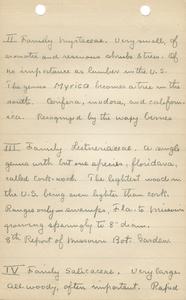 II Family Myricaceae. Very small, of
aromatic and resinous shrubs & trees. Of
no importance as lumber in the U.S.
The genus Myrica becomes a tree in the
south. Cerifera, inodora, and californ-
ica. Recognized by the waxy berries
III Family Leitneriaceae. A single
genus with but one species, floridana,
called cork-wood. The lightest wood in
the U.S. being even lighter than cork.
Ranges only in swamps, Fla. to Missouri
growing sparingly to 8" diam.
8th Report of Missouri Bot. Garden
IV Family Salicaceae. Very large.
All woody, often important. Rapid